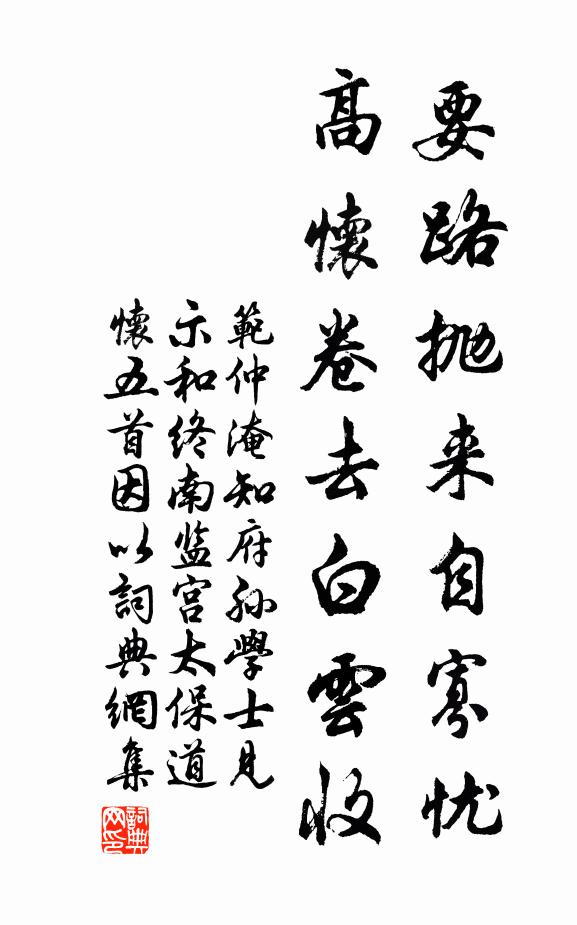 要路抛来自寡忧
高懷卷去白雲收
範仲淹知府孙學士見
示和终南监宫太保道
懷五首因以詞典網集
詞典网印